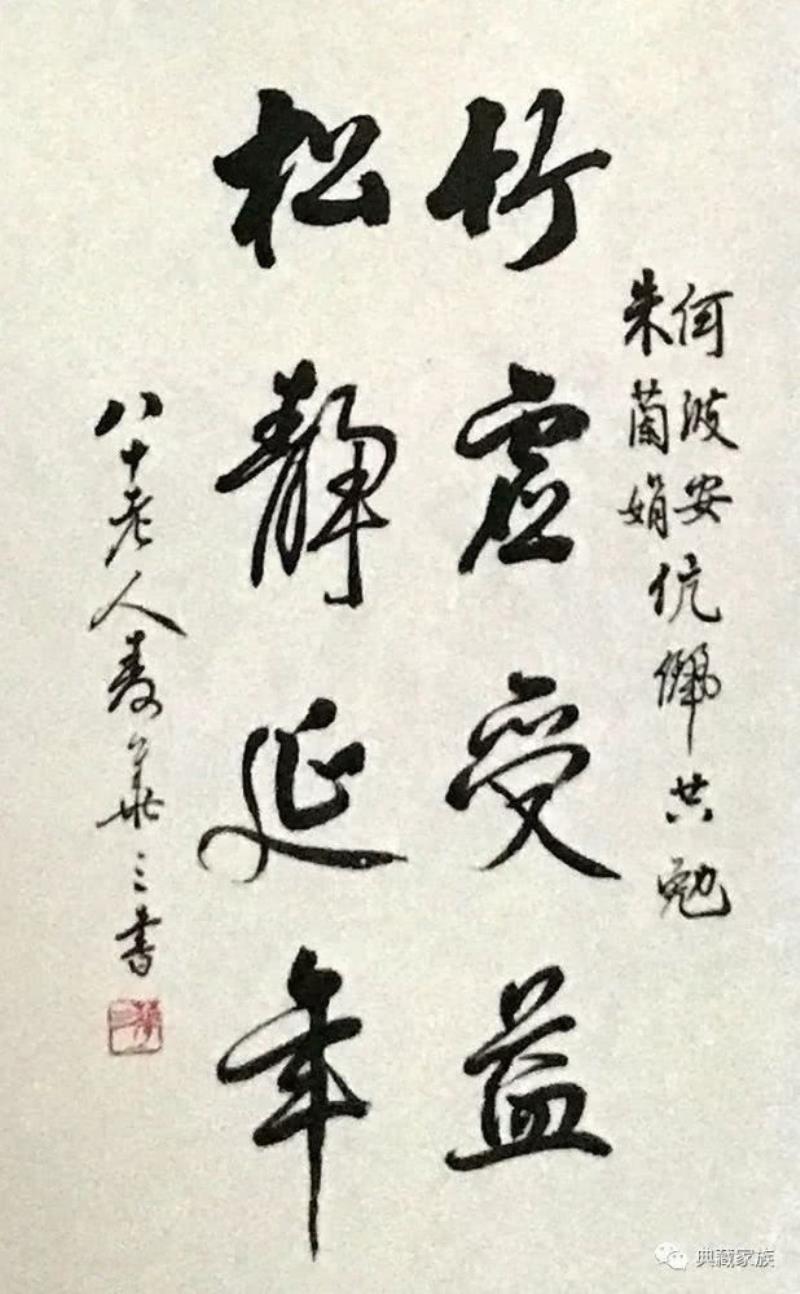 何波安
朱蘭娟
伉儷共勉
竹虛受益
松靜延年
八十老人壽華三書
華三
典藏家族